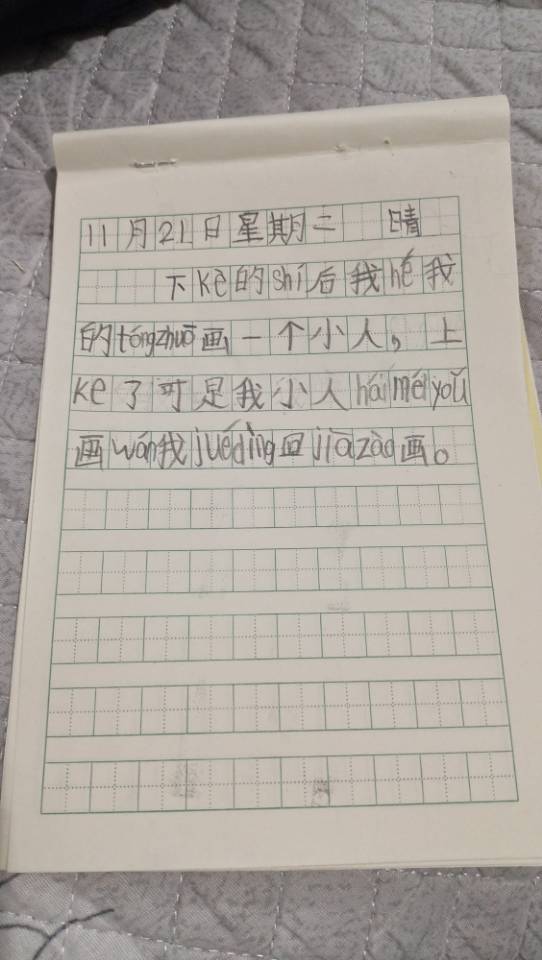 11月21日星期二 晴
下Kè的shí后我hé我
的tóngzhuō画一个小人，上
Kè了可是我小人hái méi yoǔ
画wán我juédìng回jiāzào画。